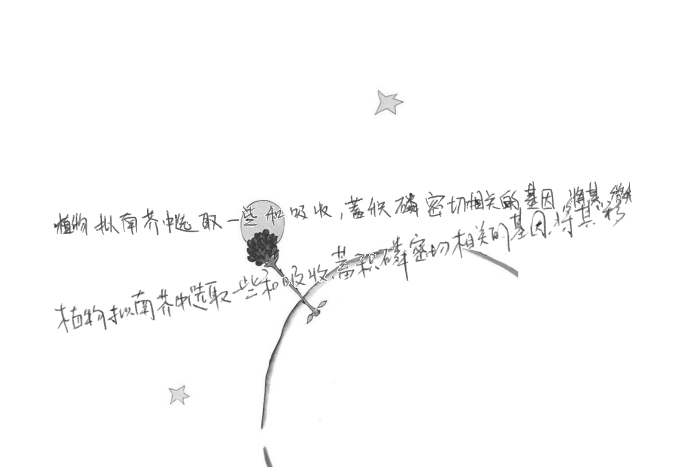 植物拟南芥中选取一些和吸收,蓄积磷密切相关的基因,将其移
植物拟南芥中选取一些和吸收,蓄积磷密切相关的基因.将其移